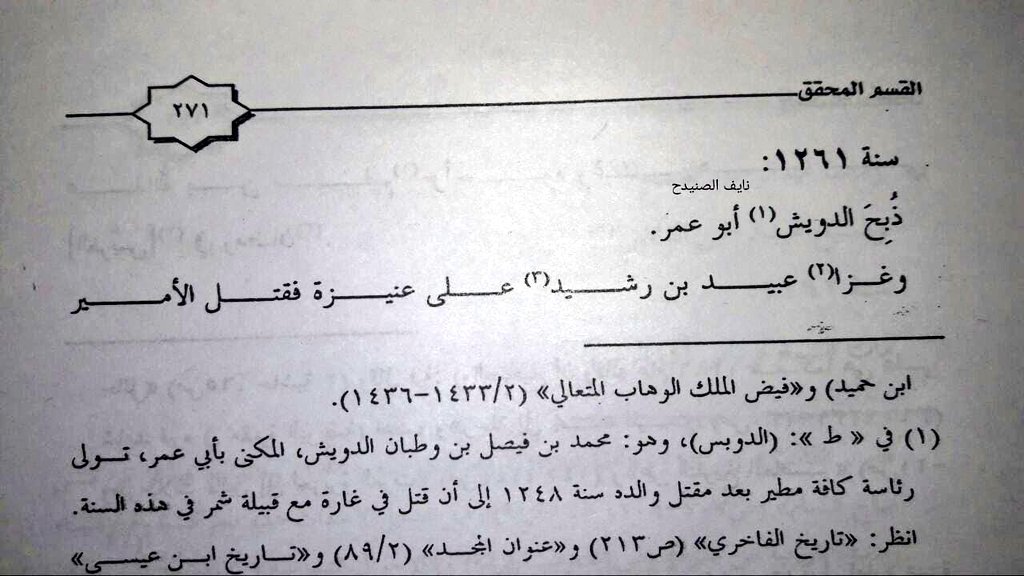 القسم المحقق
٢٧١
سنة ١٢٦١:
نايف الصنيدح
ذُبِحَ الدويش(١) أبو عمر.
وغـزا(٢) عبيـــد بن رشـــيد(٣) علـــى عنيـــزة فقتـــل الأميـــر
ابن حميد) و«فيض الملك الوهاب المتعالي» (١٤٣٣/٢-١٤٣٦).
(١) في « ط »: (الدوبس)، وهو: محمد بن فيصل بن وطبان الدويش، المكنى بأبي عمر، تـولى
رئاسة كافة مطير بعد مقتل والده سنة ١٢٤٨ إلى أن قتل في غارة مع قبيلة شمر في هذه السنة.
انظر: «تاريخ الفاخري» (ص٢١٣) و«عنوان المجد» (٨٩/٢) و«تـاريخ ابـن عيسـى»